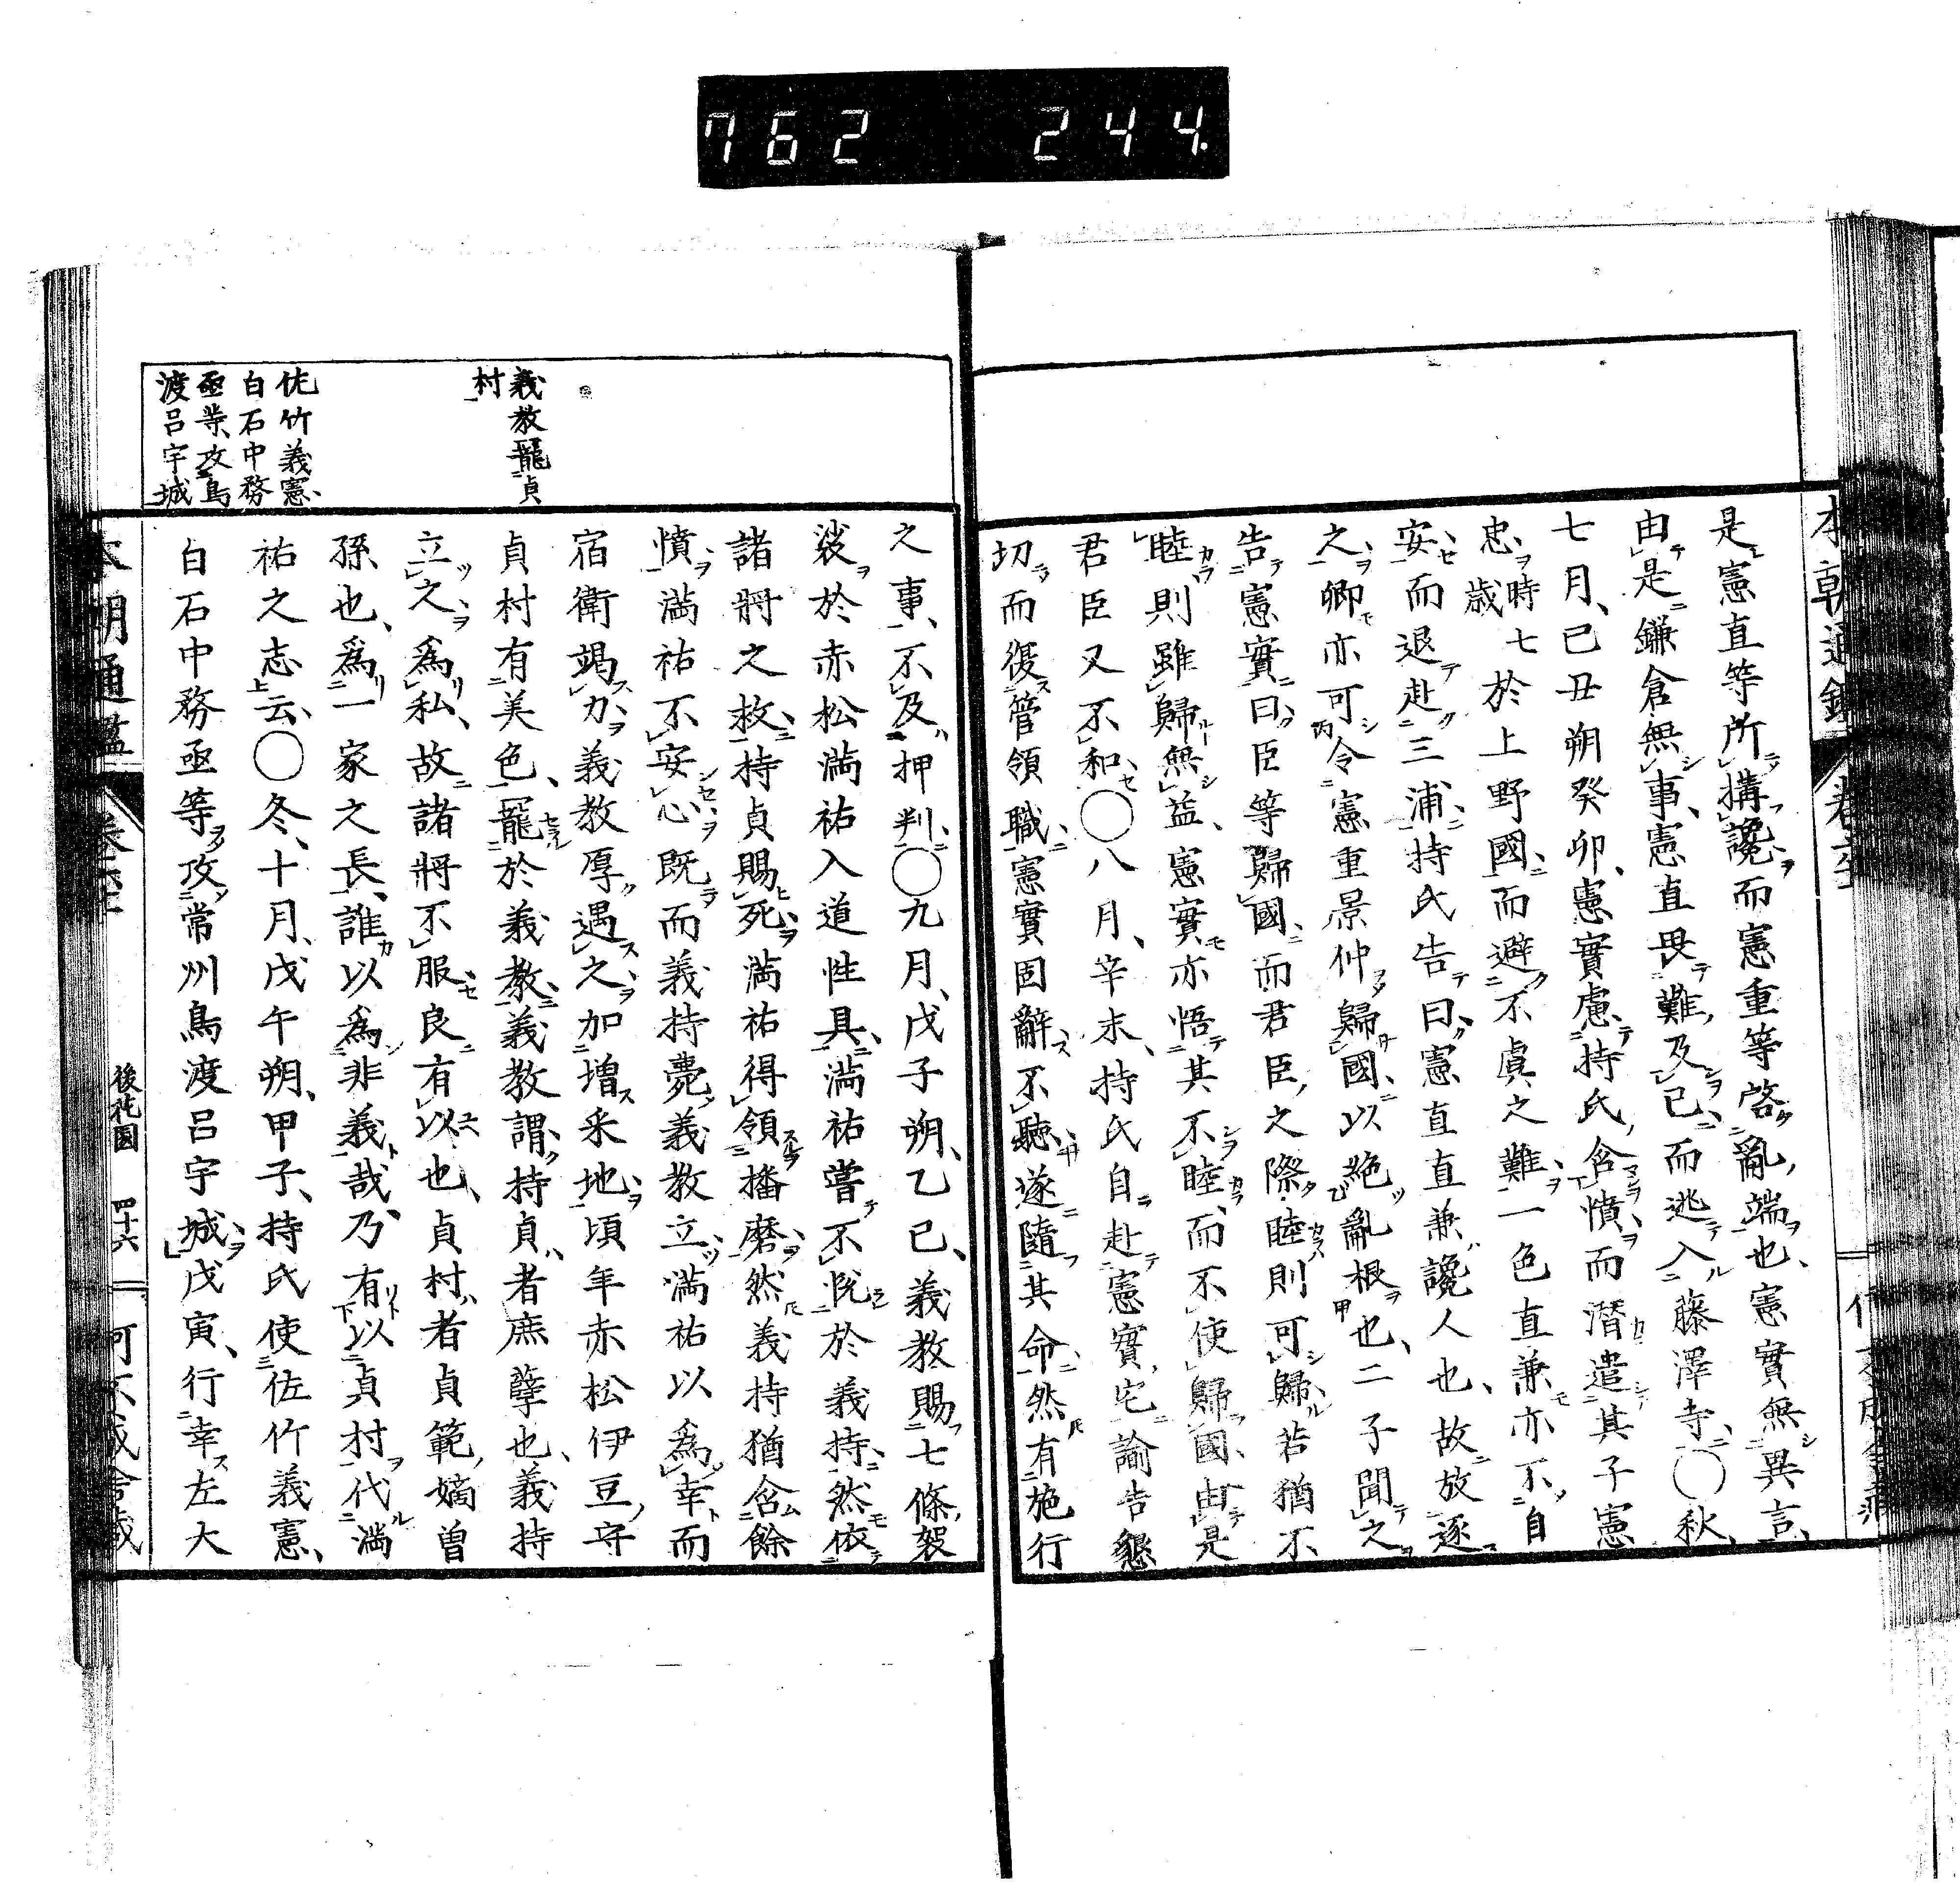 762 244.
是憲直等所搆讒而憲重等啓亂端也、憲實無異言、
由是鎌倉無事、憲直畏難及已而逃入藤澤寺、〇秋、
七月、己丑朔癸卯、憲實慮持氏含憤而潛遣其子憲
忠、時七歳於上野國而避不虞之難、一色直兼亦不自
安而退赴三浦、持氏告曰、憲直直兼讒人也、故放逐
之、卿亦可令憲重景仲歸國、以絶亂根也、二子聞之
告憲實曰、臣等歸國、而君臣之際睦則可歸、若猶不
睦則雖歸無益、憲實亦悟其不睦、而不使歸國、由是
君臣又不和〇八月、辛未、持氏自赴憲實宅、諭告懇
切而復管領職、憲實固辭不聽、遂隨其命、然有施行
義教寵貞
村
佐竹義憲、
白石中務
亟等、攻鳥
渡呂宇城
之事、不及押判、〇九月、戊子朔、乙巳、義教賜七條袈
裟於赤松滿祐入道性具、滿祐嘗不悦於義持、然依
諸將之救、持貞賜死、滿祐得領播磨、然義持猶含餘
憤、滿祐不安心、既而義持薨、義教立、滿祐以爲幸、而
宿衛竭力、義教厚遇之、加増采地、頃年赤松伊豆守
貞村有美色、寵於義教、義教謂、持貞者庶孽也、義持
立之爲私、故諸將不服良有以也、貞村者貞範嫡曾
孫也、爲一家之長、誰以爲非義哉、乃有以貞村代滿
祐之志云、〇冬、十月、戊午朔、甲子、持氏使佐竹義憲、
白石中務亟等攻常州鳥渡呂宇城、戊寅、行幸左大
本朝通鑑
後花園 四十六